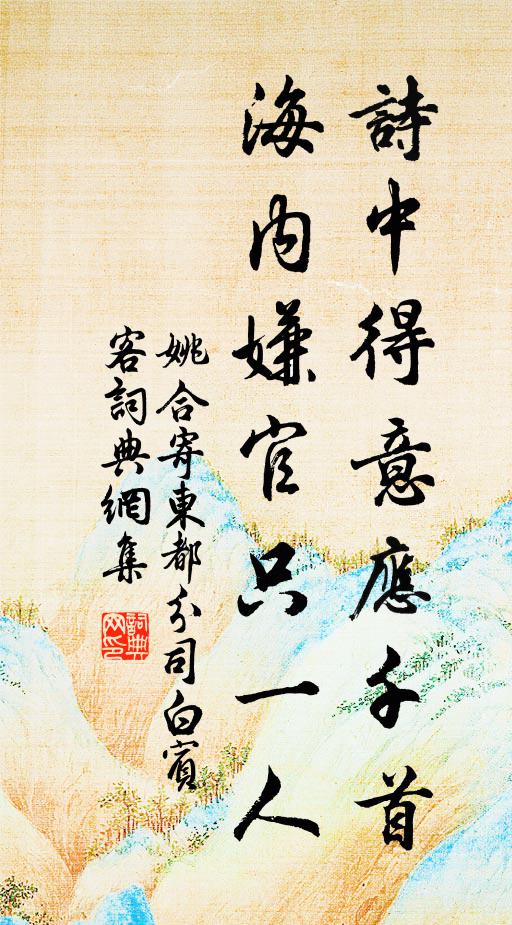 詩中得意應千首
海内嫌官只一人
姚合寄東都分司白賓
客詞典網集
詞典网印